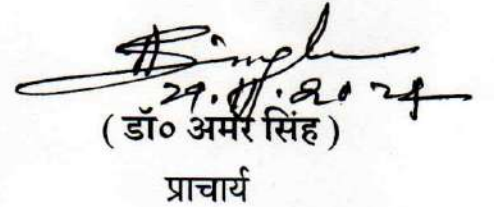 Singh
29.11.2024
( डॉ० अमर सिंह )
प्राचार्य